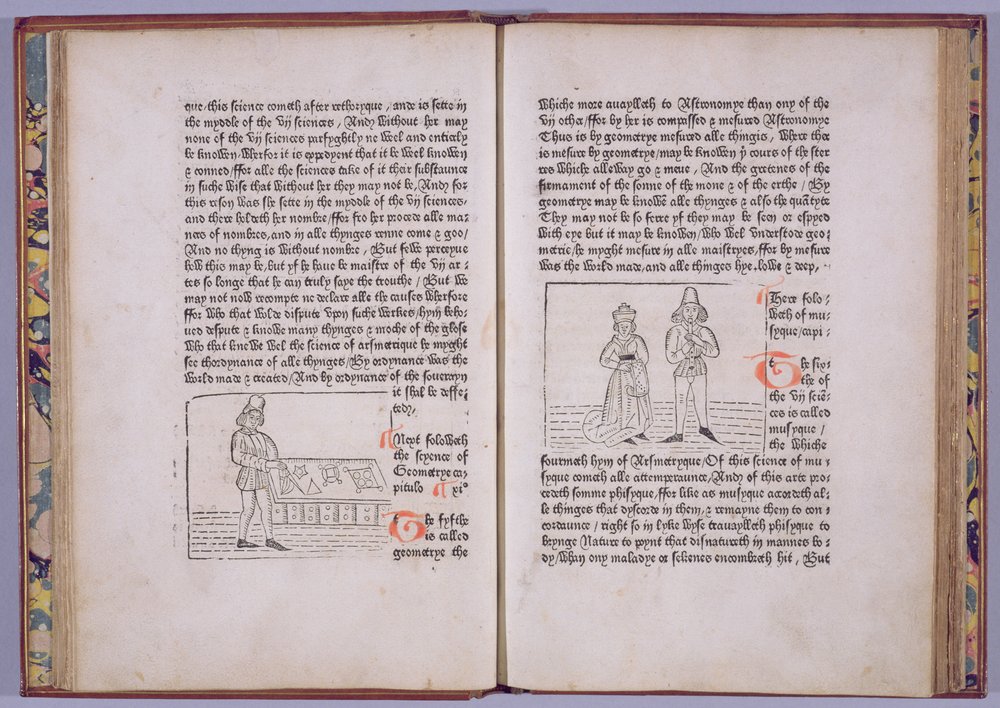 que, this science cometh after rethoryque, ande is sette in
the myddle of the vij sciences, And without her may
none of the vij sciences parfyghtly ne wel and entierly
be knowen, Wherfor it is expedyent that it be wel knowen
& conned/ffor alle the sciences take of it their substaunce
in suche wise that without her they may not be, And for
this reson was she sette in the myddle of the vij sciences,
and there holdeth her nombre/ffor fro her procede alle ma⸗
ners of nombres, and in alle thynges renne come & goo/
And no thyng is without nombre, But fewe perceyue
how this may be, but yf he haue be maistre of the vij ar⸗
tes so longe that he can truly saye the trouthe/ But we
may not now recompte ne declare alle the causes wherfore
ffor who that wolde dispute vpon suche werkes/hym beho⸗
ued despute & knowe many thynges & moche of the glose
Who that knewe wel the science of arsmetrique he myght
see thordynance of alle thynges/By ordynance was the
world made & created/And by ordynance of the souerayn
it shal be deffe⸗
ted,
Next foloweth
the scyence of
Geometrye ca⸗
pitulo xi°
the fyfthe
is called
geometrye the
Whiche more auaylleth to Astronomye than ony of the
vij other/ffor by her is compassed & mesured Astronomye
Thus is by geometrye mesured alle thingis, Where ther
is mesure by geometrye/may be knowen þ cours of the ster
res whiche alleway go & meue, And the gretenes of the
firmament of the sonne of the mone & of the erthe/ By
geometrye may be knowē alle thynges & also the quātyte
They may not be so ferre yf they may be seen or espyed
with eye but it may be knowen/Who wel vnderstode geo⸗
metrie/he myght mesure in alle maistryes, ffor by mesure
was the world made, and alle thinges hye, lowe & deep,
There folo⸗
weth of mu⸗
syque/capi⸗
the six⸗
the of
the vij sciē⸗
ces is called
musyque/
the whiche
fourmeth hym of Arsmetryque/Of this science of mu⸗
syque cometh alle attemperaunce, And of this arte pro⸗
cedeth somme phisyque, ffor like as musyque accordeth al⸗
le thinges that dyscorde in them, & remayne them to con⸗
cordaunce/ right so in lyke wyse trauaylleth phisyque to
brynge Nature to poynt that disnatureth in mannes bo⸗
dy/whan ony maladye or sekenes encombreth hit, But